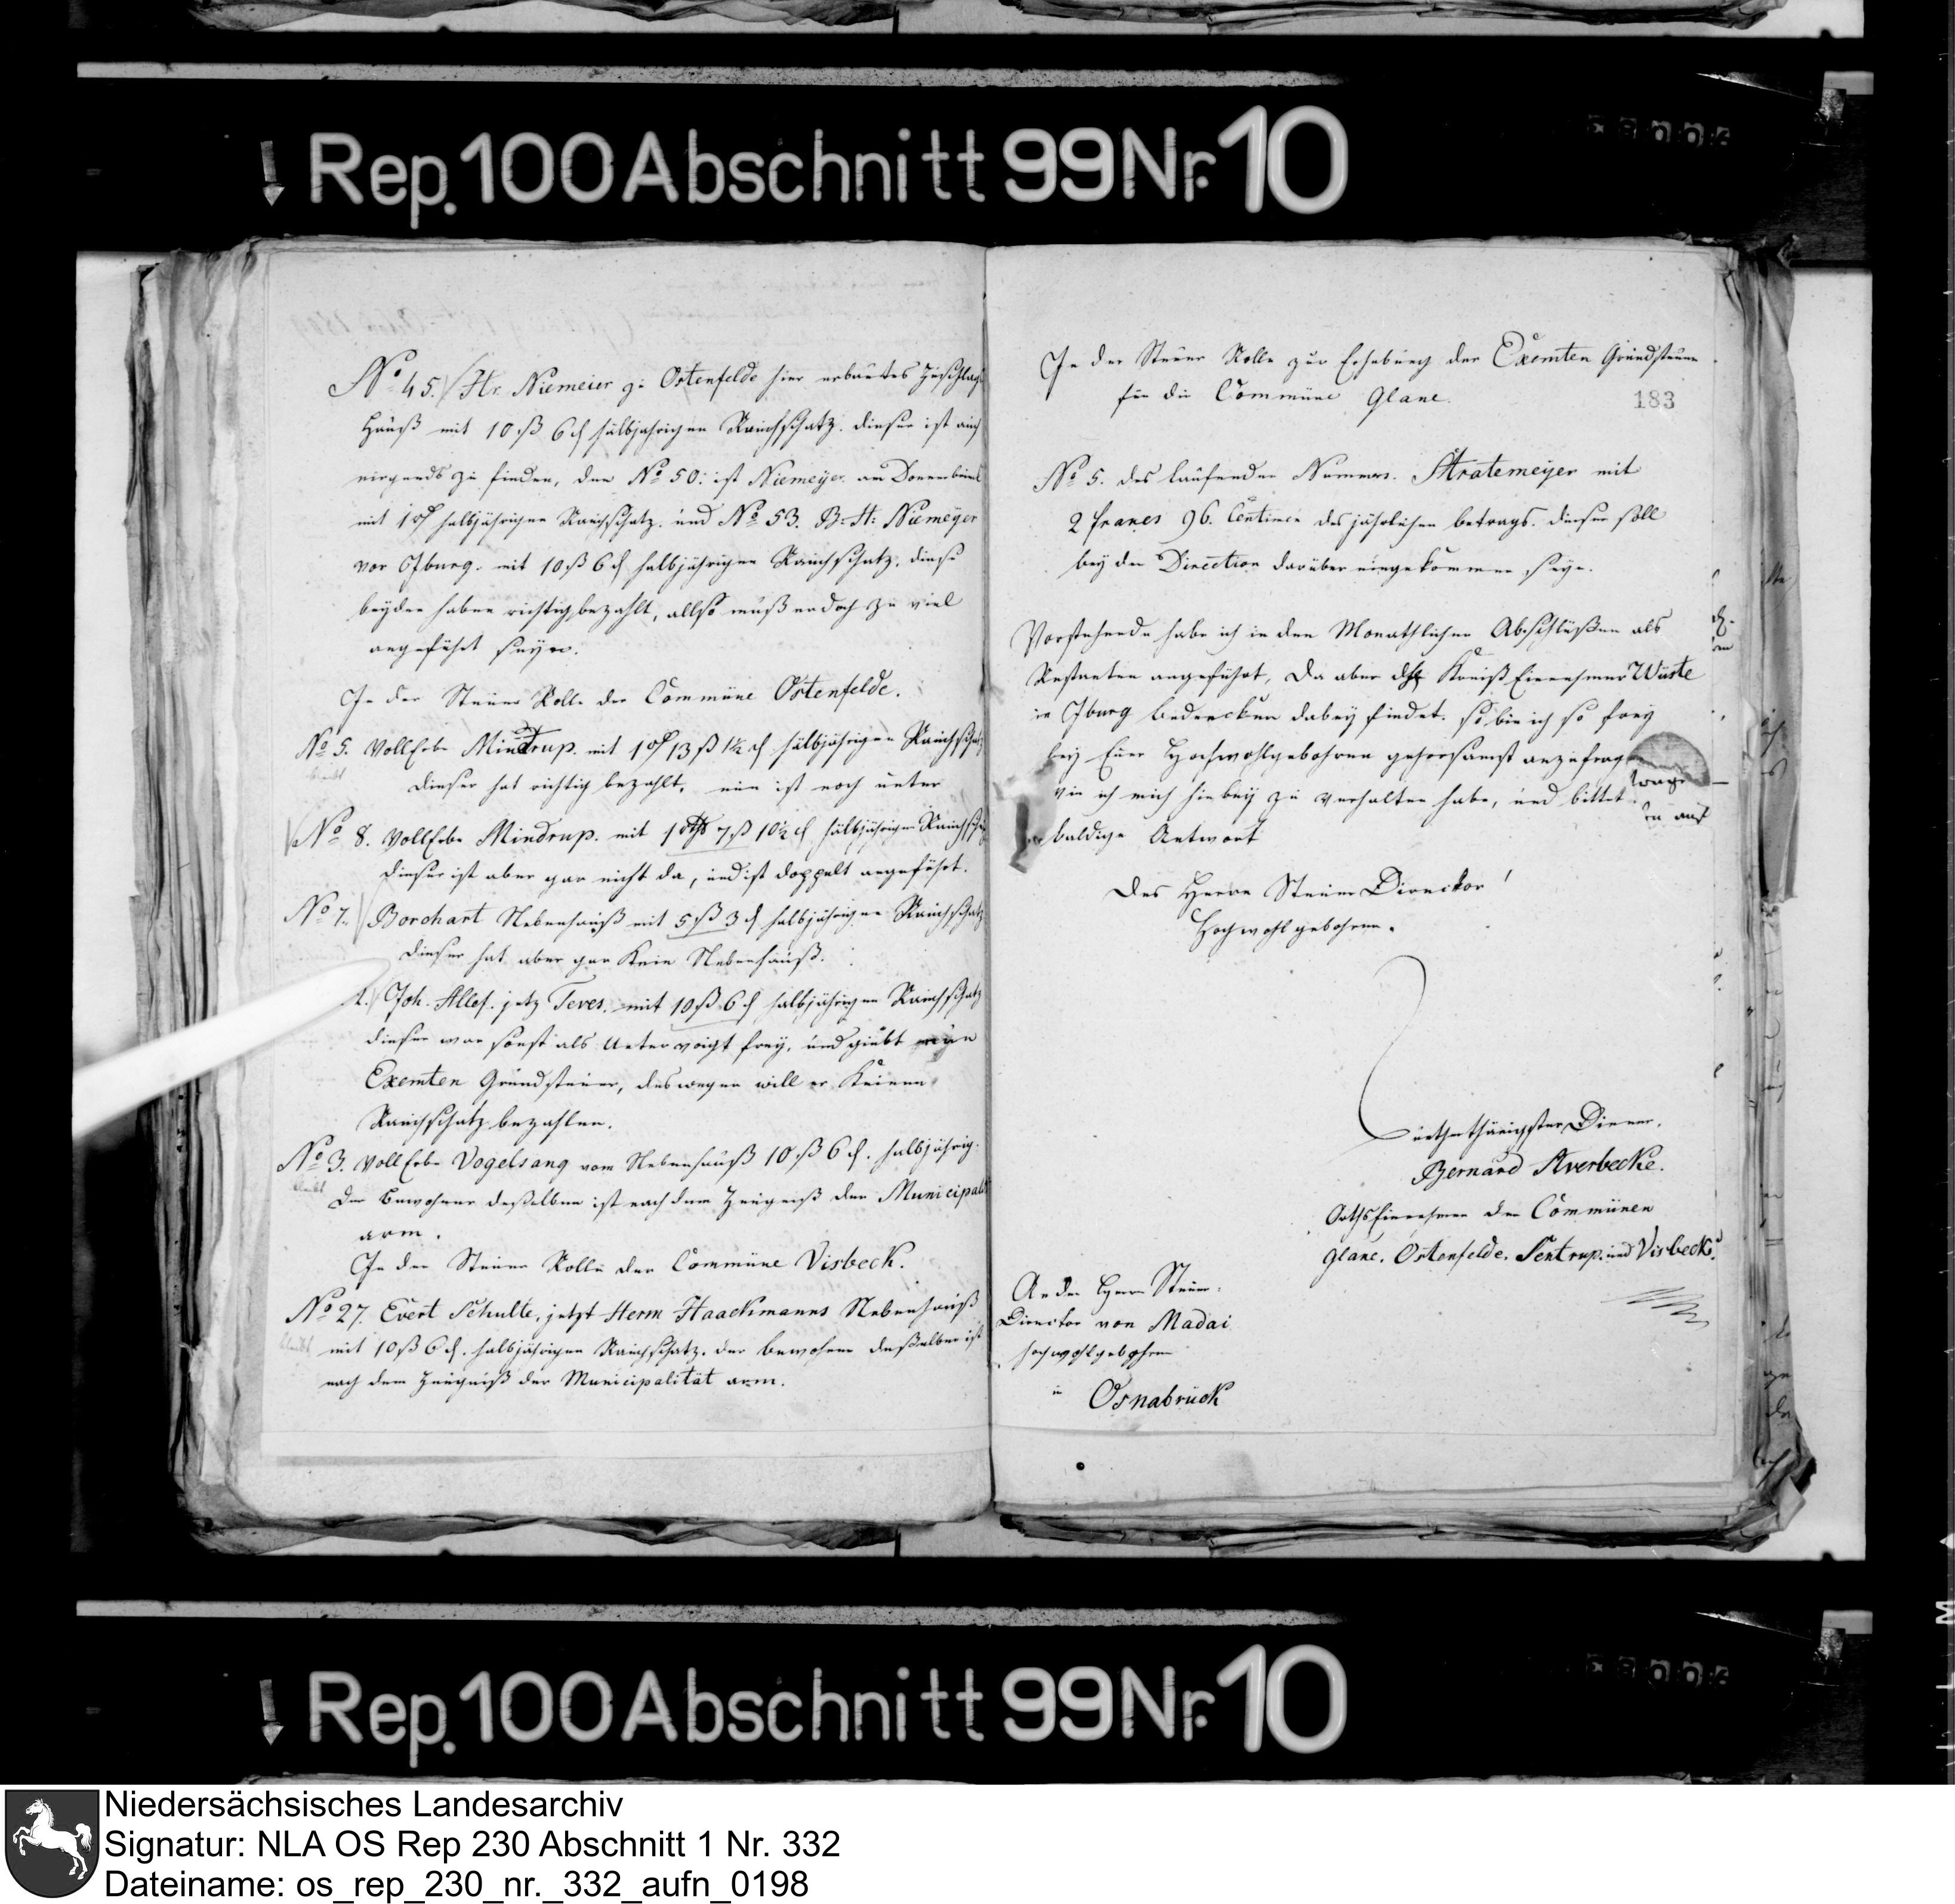 Rep. 100 Abschnitt 99 Nr. 10
No 45. Hr. Niemeier z: Ostenfelde hier erbautes Zuschlags
Hauß mit 10 ß 6 ₰ halbjahrigen Rauchschatz. dieser ist auch
nirgends zu finden, den No 50: ist Niemeyer am Donnerbrink
mit 10 halbjährigen Rauchschatz. und No 53. B: H: Niemeyer
vor Iburg. mit 10 ß 6 ₰ halbjährigen Rauchschatz, diese
beyden haben richtig bezahlt, allso muß er doch zu viel
angeführt seyn.
In der Steuer Rolle der Commüne Ostenfelde.
No 5. VollErbe Mindrup. mit 1 13 ß 1½ ₰ halbjährigen Rauchschatz
bleibt
dieser hat richtig bezahlt, nun ist noch unter
No 8. VollErbe Mindrup. mit 1 7 ß 10½ ₰ halbjährigen Rauchschatz
dieser ist aber gar nicht da, und ist doppelt angeführt.
No 7. Borchart Nebenhauß mit 5 ß 3 ₰ halbjährigen Rauchschatz
dieser hat aber gar kein Nebenhauß.
Joh. Allef. jetz Teves. mit 10 ß 6 ₰ halbjährigen Rauchschatz
dieser war sonst als Untervoigt frey, und giebt nun
Exemten Grundsteuer, deswegen will er keinen
Rauchschatz bezahlen.
No 3. VollErbe Vogelsang vom Nebenhauß 10 ß 6 ₰. halbjährig.
bleibt
Der Bewohner deßelben ist nach dem Zeugniß der Municipalit
arm.
In der Steuer Rolle der Commüne Visbeck.
No 27. Evert Schulte, jetzt Herm Haackmanns Nebenhauß
bleibt
mit 10 ß 6 ₰. halbjährigen Rauchschatz. der bewohner deßelben ist
nach dem Zeugniß der Municipalität arm.
In der Steuer Rolle zur Erhebung der Exemten Grundsteuer
für die Commüne Glane.
183
No 5. des laufenden Nummers. Stratemeyer mit
2 francs 96. Centimen des jährlichen betrags. dieser soll
bey der Direction darüber eingekommen seyn.
Vorstehende habe ich in den Monathlichen Abschlüßen als
Restanten angeführt, Da aber Kreiß Einnehmer Wüste
in Iburg bedencken dabey findet. so bin ich so frey
bey Euer Hochwohlgebohren gehorsamst anzufragen
wie ich mich hiebey zu verhalten habe, und bitte
baldige Antwort
Des Herrn Steuer Direcktor!
Hochwohlgebohren.
unterthänigster Diener.
Bernard Averbecke.
OrthsEinnehmer der Commünen
Glane. Ostenfelde. Sentrup. und Visbeck.
An den Herrn Steuer-
Director von Madai
hochwohlgebohren
in
Osnabrück
Rep. 100 Abschnitt 99 Nr. 10
Niedersächsisches Landesarchiv
Signatur: NLA OS Rep 230 Abschnitt 1 Nr. 332
Dateiname: os_rep_230_nr._332_aufn_0198